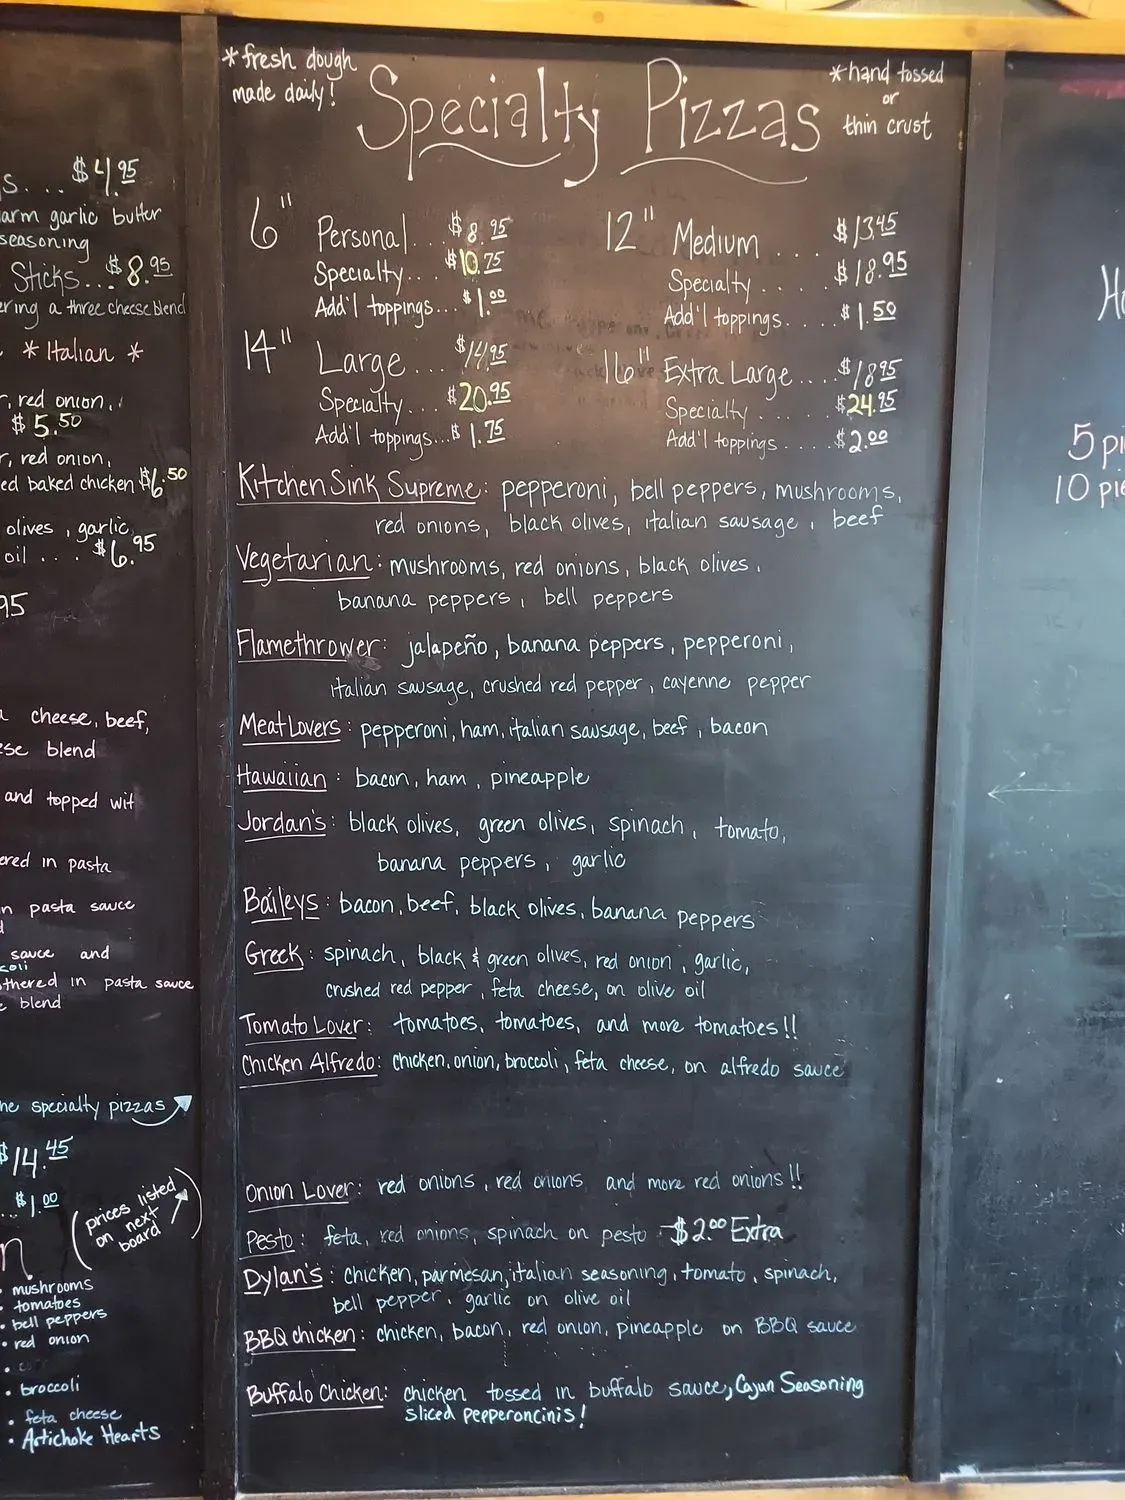 s. . . $4.95
arm garlic butter
seasoning
Sticks. . . $8.95
ering a three cheese blend
* Italian *
r, red onion,
$5.50
r, red onion,
ed baked chicken $6.50
olives, garlic,
oil . . . $6.95
95
a cheese, beef,
ese blend
and topped wit
ered in pasta
n pasta sauce
d
sauce and
coli
othered in pasta sauce
e blend
he specialty pizzas
$14.45
. . $1.00
(prices listed
on next
board)
n
• mushrooms
• tomatoes
• bell peppers
• red onion
• broccoli
• feta cheese
• Artichoke Hearts
* fresh dough
made daily!
Specialty Pizzas
* hand tossed
or
thin crust
6" Personal. . . $8.95
Specialty. . . $10.75
Add'l toppings. . . $1.00
12" Medium . . . . $13.45
Specialty . . . . . $18.95
Add'l toppings. . . . . $1.50
14" Large . . . $14.95
Specialty. . . $20.95
Add'l toppings. . . $1.75
16" Extra Large. . . . $18.95
Specialty . . . . . $24.95
Add'l toppings . . . . $2.00
Kitchen Sink Supreme: pepperoni, bell peppers, mushrooms,
red onions, black olives, italian sausage, beef
Vegetarian: mushrooms, red onions, black olives,
banana peppers, bell peppers
Flamethrower: jalapeño, banana peppers, pepperoni,
italian sausage, crushed red pepper, cayenne pepper
Meat Lovers: pepperoni, ham, italian sausage, beef, bacon
Hawaiian: bacon, ham, pineapple
Jordan's: black olives, green olives, spinach, tomato,
banana peppers, garlic
Baileys: bacon, beef, black olives, banana peppers
Greek: spinach, black & green olives, red onion, garlic,
crushed red pepper, feta cheese, on olive oil
Tomato Lover: tomatoes, tomatoes, and more tomatoes!!
Chicken Alfredo: chicken, onion, broccoli, feta cheese, on alfredo sauce
Onion Lover: red onions, red onions and more red onions!!
Pesto: feta, red onions, spinach on pesto $2.00 Extra
Dylan's: chicken, parmesan, italian seasoning, tomato, spinach,
bell pepper, garlic on olive oil
BBQ chicken: chicken, bacon, red onion, pineapple on BBQ sauce
Buffalo Chicken: chicken tossed in buffalo sauce, Cajun Seasoning
sliced pepperoncinis!
Ho
5 pi
10 pie